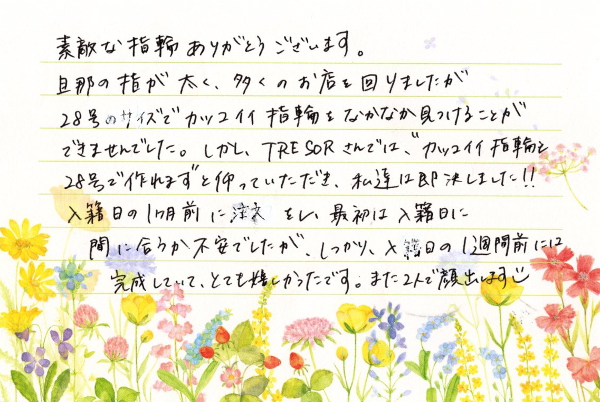 素敵な指輪ありがとうございます。
旦那の指が太く、多くのお店を回りましたが
28号のサイズでカッコイイ指輪をなかなか見つけることが
できませんでした。しかし、TRESORさんでは、“カッコイイ指輪を
28号で作れます”と仰っていただき、私達は即決しました!!
入籍日の1ヶ月前に注文をし、最初は入籍日に
間に合うか不安でしたが、しっかり、入籍日の1週間前には
完成していて、とても嬉しかったです。また2人で顔出します